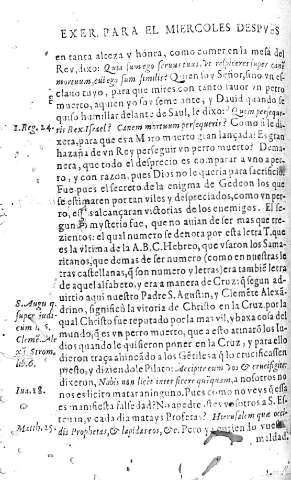 EXER. PARA EL MIERCOLES DESPVES
en tanta alteza y hõnra, como comer en la mesa del
Rey, dixo: Quis sum ego seruus tuus, vt respiceres super canẽ
mortuum, cui ego sum similis? Quien soy Señor, sino vn es-
clauo tuyo, para que mires con tanto fauor vn perro
muerto, a quien yo soy semejante, y Dauid quando se
quiso humillar delante de Saul, le dixo: Quem persequeris
1. Reg. 24. Rex Israel? Canem mortuum persequeris? Como si le di-
xera, para que esa Moro muerto dan lançada: Es gran
hazaña de vn Rey perseguir vn perro muerto? De ma-
nera, que todo el desprecio es comparar a vno a per-
ro, y con razon, pues Dios no le queria para sacrificio.
Fue pues el secreto de la enigma de Gedeon los que
se estimaren por tan viles y despreciados, como vn per-
ro, essos alcançaran victorias de los enemigos. El se-
gundo mysterio fue, que no auian de ser mas que tre-
zientos: el qual numero se denota por esta letra T. que
es la vltima de la A.B.C. Hebreo, que vsaron los Sama-
ritanos, que demas de ser numero (como en nuestras le
tras castellanas, q̃ son numero y letras) era tambiẽ letra
de aquel alfabeto, y era a manera de Cruz: q̃ segun ad-
S. Augu. q. uirtio aqui nuestro Padre S. Agustin, y Clemẽte Alexã-
super iudi- drino, significò la vitoria de Christo en la Cruz, por la
cum l. 5. qual Christo fue reputado por la mas vil, y baxa cosa del
Clemẽ. Ale. mundo, q̃ es vn perro muerto, que a esto atinarõ los Iu-
xã. Strom. dios quando le quisieron poner en la Cruz, y para ello
lib. 6. dieron traça ahincãdo a los Gẽtiles a q̃ lo crucificassen
presto, y diziendole Pilato: Accipite eum vos & crucifigite;
Ioã. 18. dixeron, Nobis non licet interficere quẽquam, a nosotros no
nos es licito matar a ninguno. Pues como veys q̃ essa
es manifiesta falsedad? No apedreastes vosotros a S. Es-
teuan, y cada dia matays Profetas? Hierusalem quæ occi-
Matth. 25. dis Prophetas, & lapidas eos, &c. Pero ya entiendo vuestra
maldad,